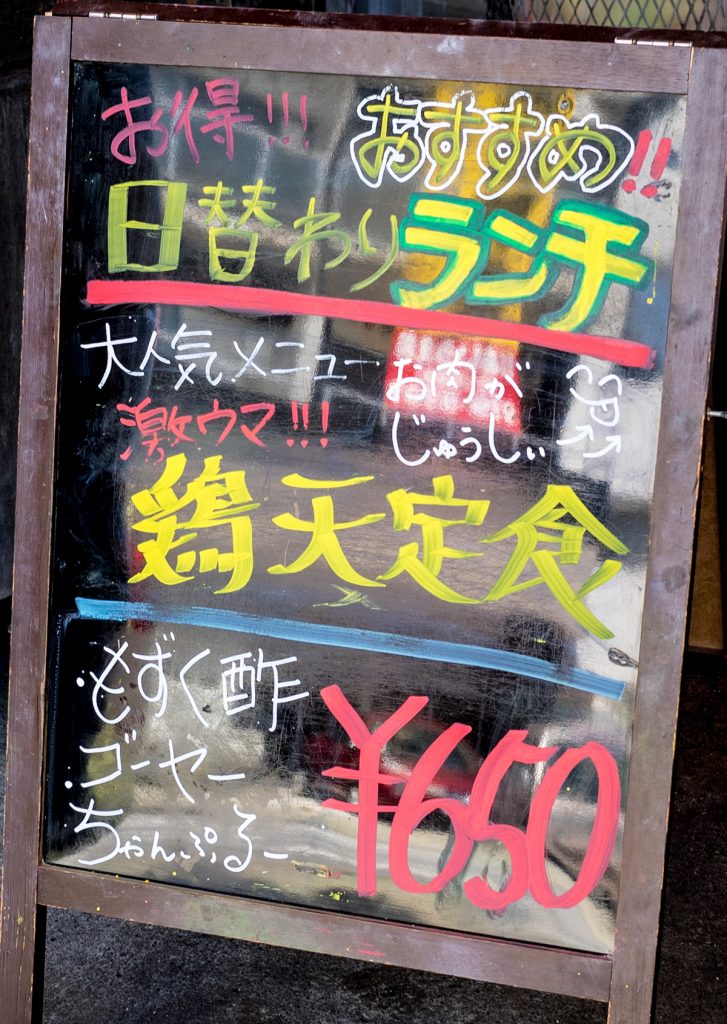 お得!!! おすすめ!!
日替わりランチ
大人気メニュー
激ウマ!!!
お肉が
じゅうしぃ
鶏天定食
・もずく酢
・ゴーヤー
ちゃんぷるー
¥650